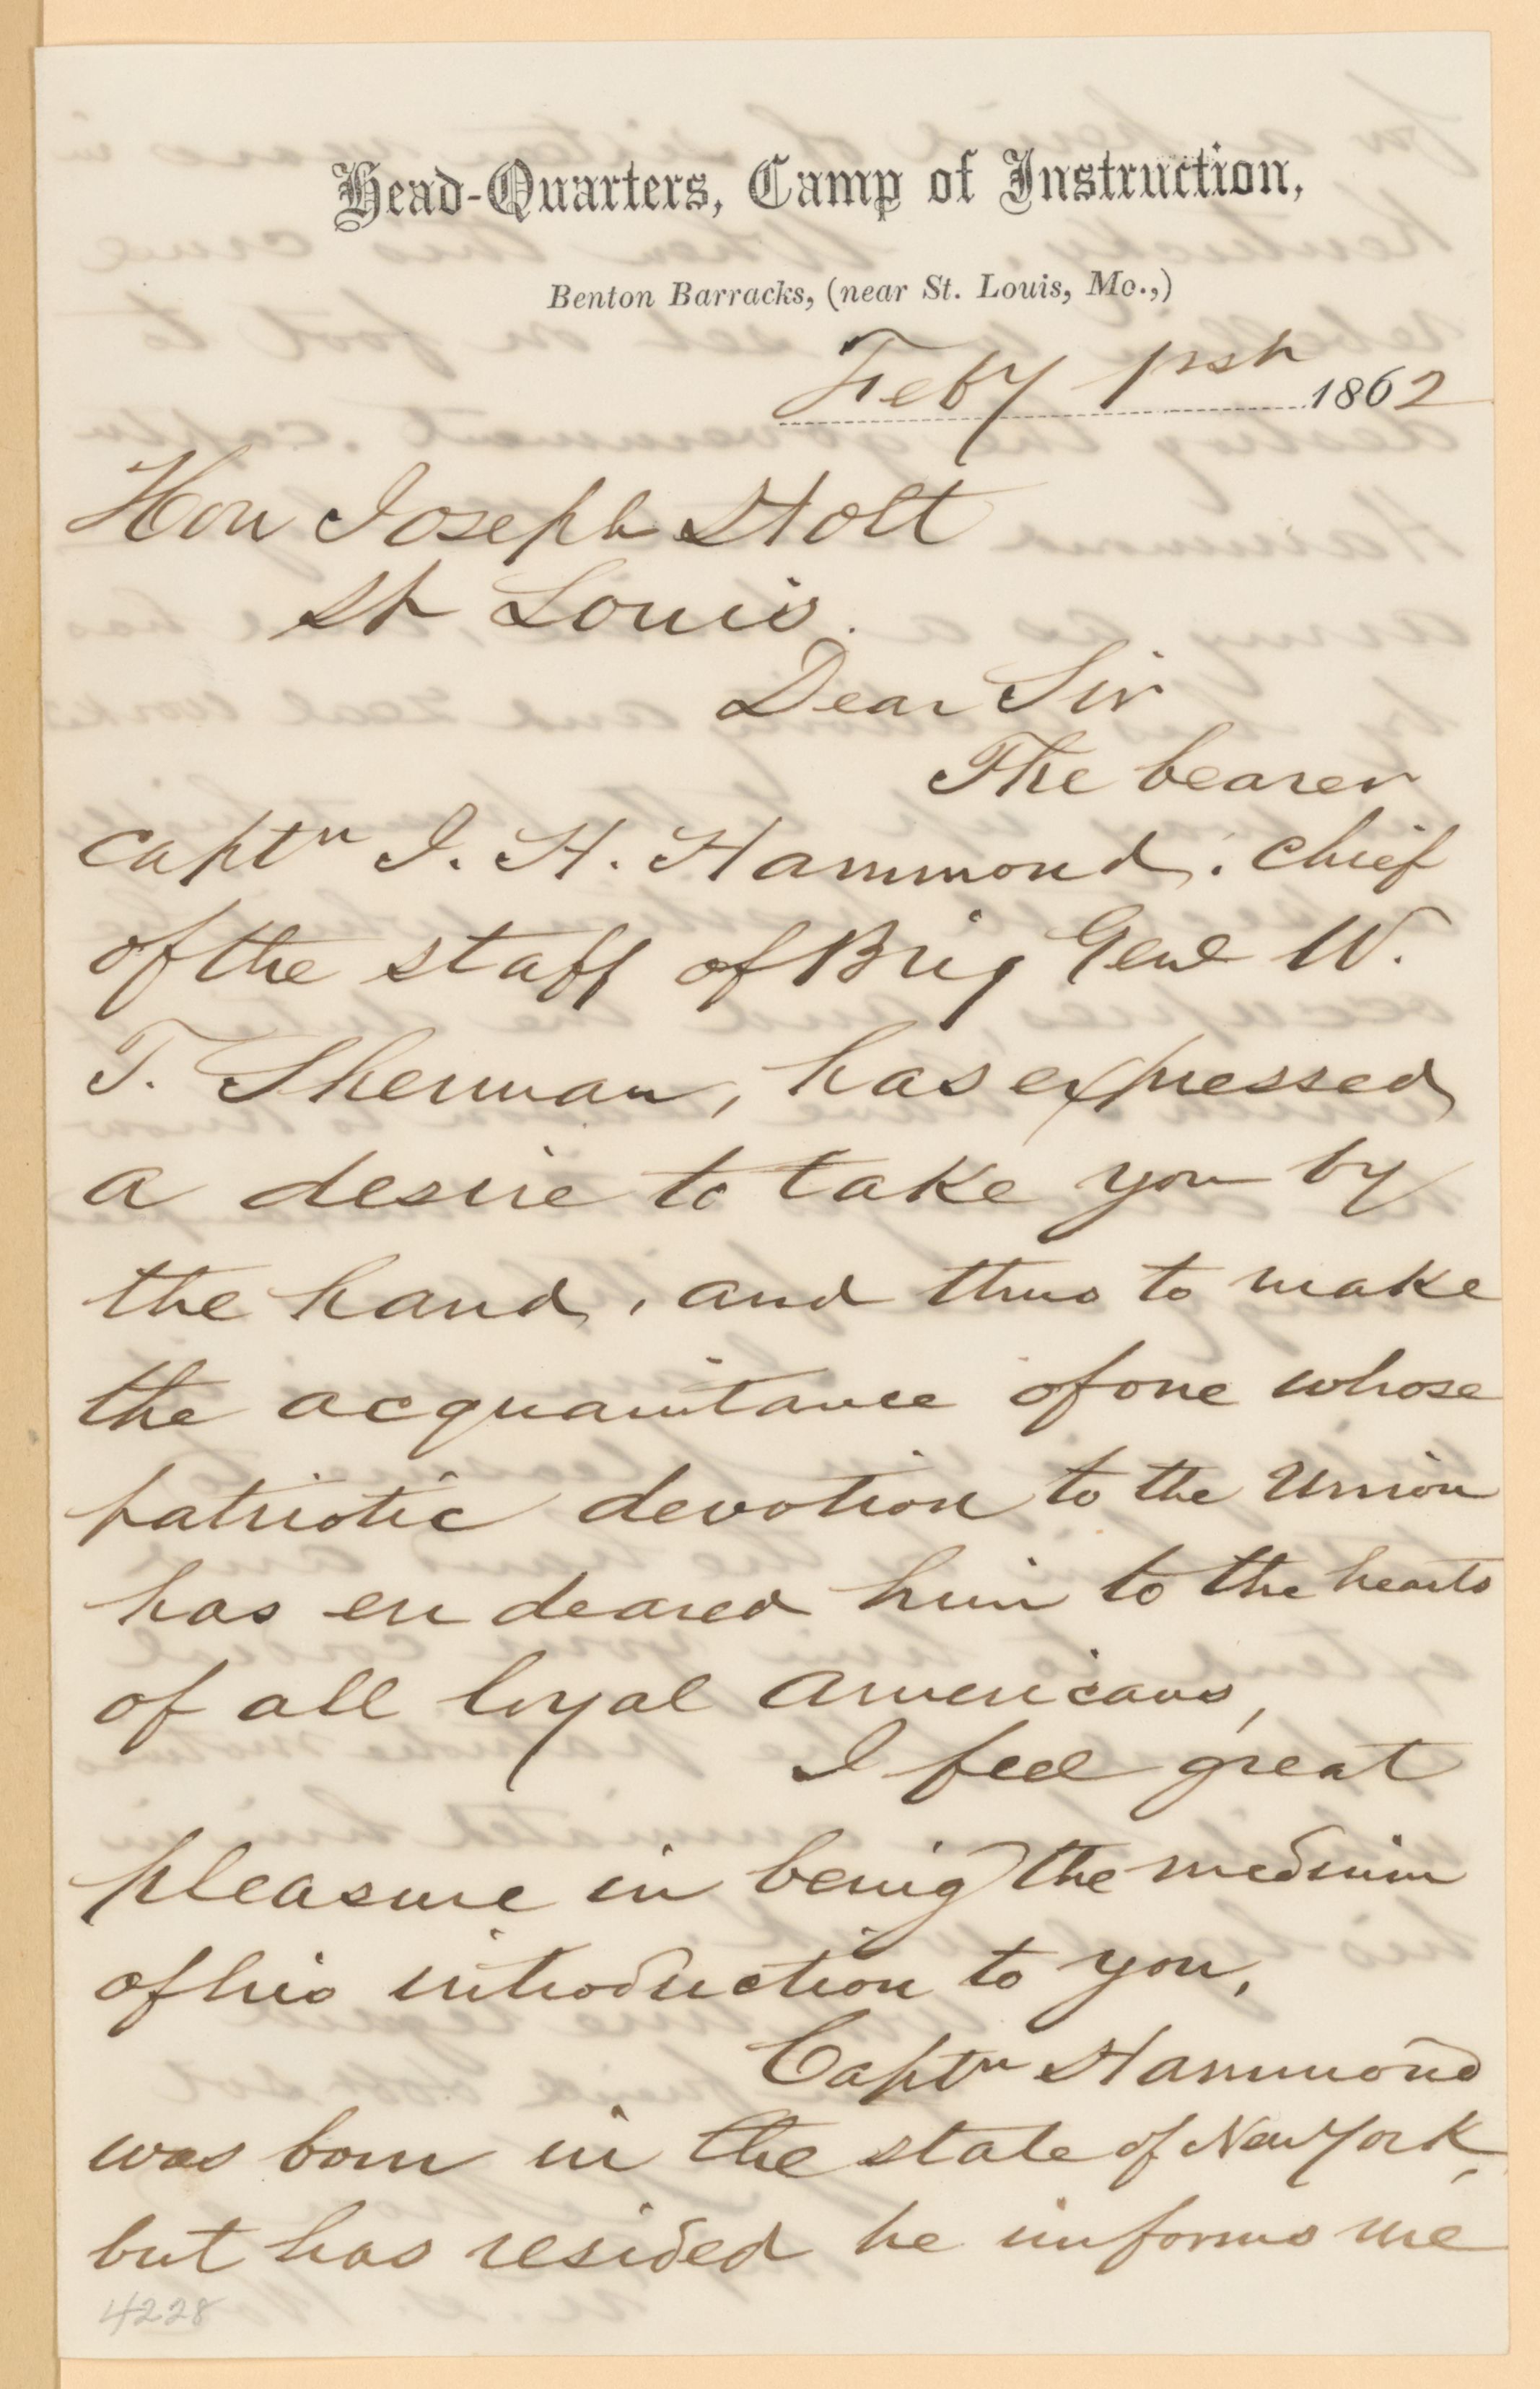 Head-Quarters, Camp of Instruction,
Benton Barracks, (near St. Louis, Mo.,)
Feby 1rst 1862
Hon Joseph Holt
St Louis.
Dear Sir
The bearer
Captn J. H. Hammond. chief
of the staff of Brig Genl W.
T. Sherman, has expressed
a desire to take you by
the hand, and thus to make
the acquaintance of one whose
patriotic devotion to the Union
has endeared him to the hearts
of all loyal Americans,
I feel great
pleasure in being the medium
of his introduction to you,
Captn Hammond
was born in the state of New York,
but has resided he informs me
4228